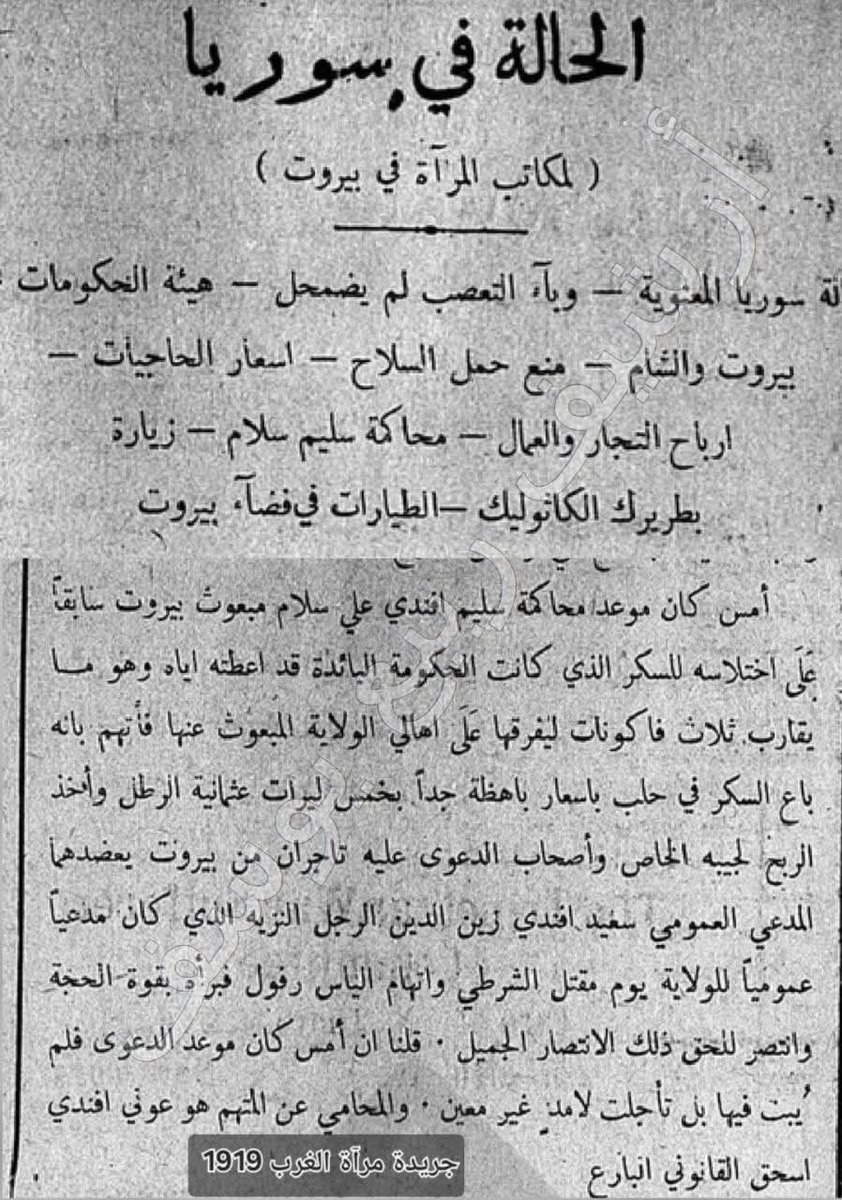 الحالة في سوريا
( لمكاتب المرآة في بيروت )
لة سوريا المعنوية — وبآء التعصب لم يضمحل — هيئة الحكومات
بيروت والشام — منع حمل السلاح — اسعار الحاجيات —
ارباح التجار والعمال — محاكمة سليم سلام — زيارة
بطريرك الكاثوليك — الطيارات في فضآء بيروت
أمس كان موعد محاكمة سليم افندي علي سلام مبعوث بيروت سابقاً
عَلَى اختلاسه للسكر الذي كانت الحكومة البائدة قد اعطته اياه وهو ما
يقارب ثلاث فاكونات ليفرقها عَلَى اهالي الولاية المبعوث عنها فأتهم بانه
باع السكر في حلب باسعار باهظة جداً بخمس ليرات عثمانية الرطل وأخذ
الربح لجيبه الخاص وأصحاب الدعوى عليه تاجران من بيروت يعضدهما
المدعي العمومي سعيد افندي زين الدين الرجل النزيه الذي كان مدعياً
عمومياً للولاية يوم مقتل الشرطي واتهام الياس رفول فبرأه بقوة الحجة
وانتصر للحق ذلك الانتصار الجميل · قلنا ان أمس كان موعد الدعوى فلم
يُبت فيها بل تأجلت لامد غير معين · والمحامي عن المتهم هو عوني افندي
اسحق القانوني البارع
جريدة مرآة الغرب 1919
أرشيف ربيع يوسف